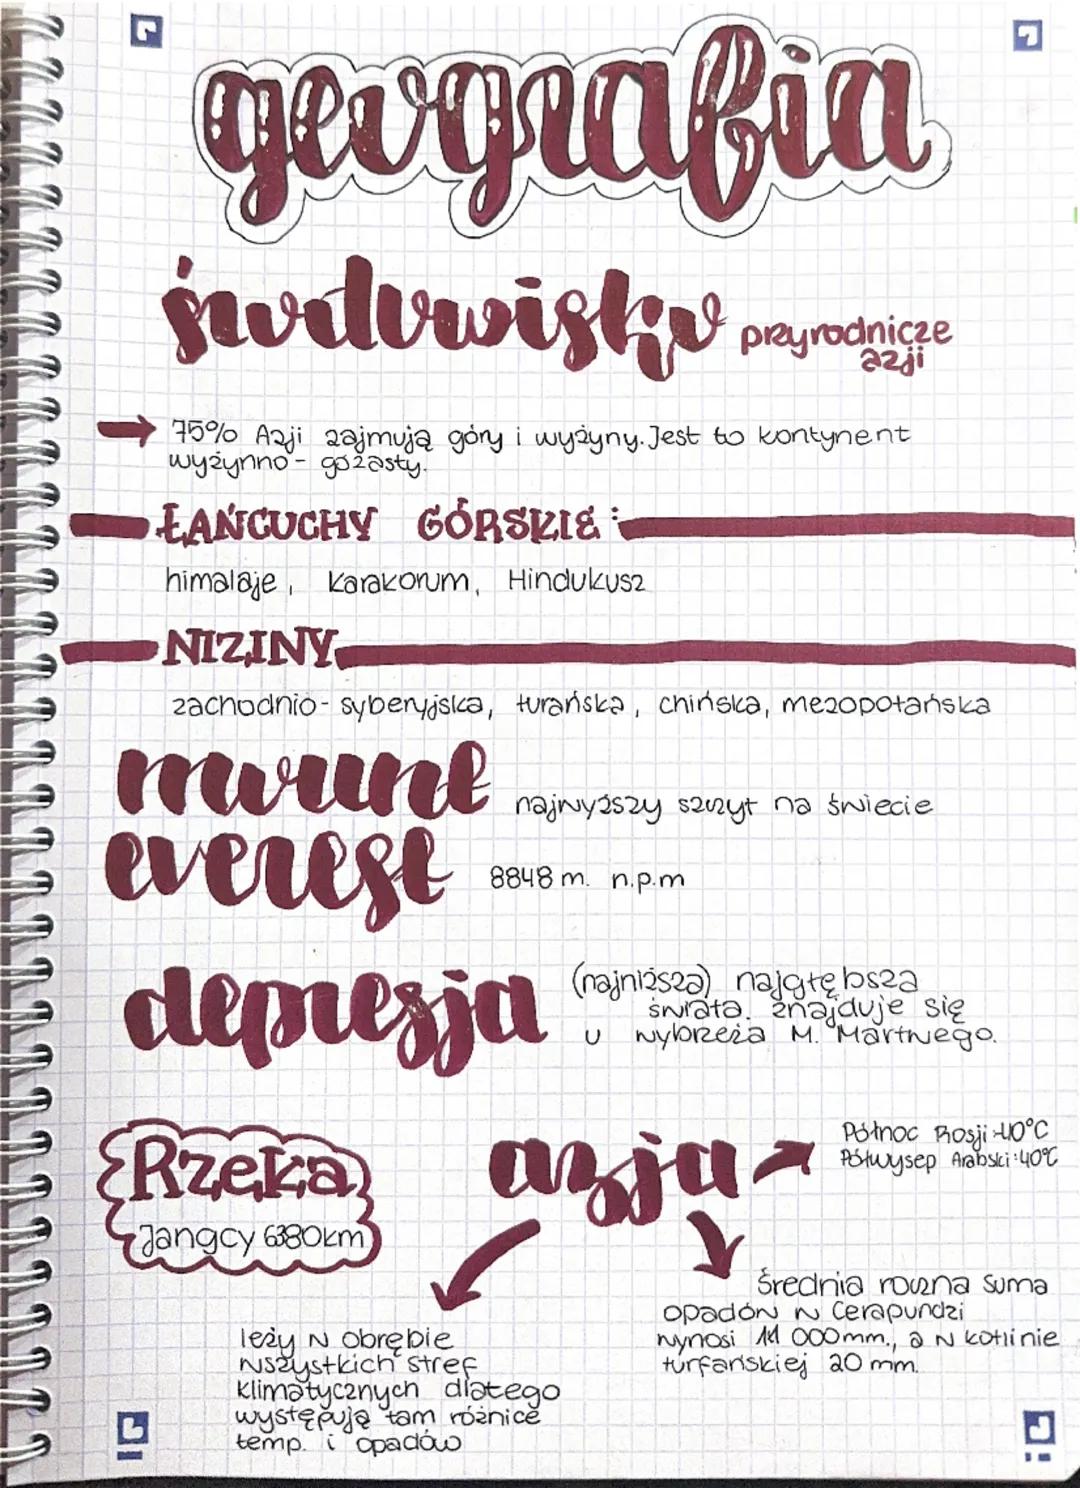 geografia
środowisko przyrodnicze
azji
75% Azji zajmują góry i wyżyny. Jest to kontynent
wyżynno - górzasty.
ŁAŃCUCHY GÓRSKIE:
himalaje, Karakorum, Hindukusz
NIZINY
zachodnio - syberyjska, turańska, chińska, mezopotańska
mount
everest
najwyższy szczyt na świecie
8848 m. n.p.m
depresja
(najniższa) najgłębsza
świata. znajduje się
u wybrzeża M. Martwego.
Rzeka
Jangcy 6380km
azja
Północ Rosji -40°C
Półwysep Arabski: 40°C
leży w obrębie
wszystkich stref
klimatycznych dlatego
występują tam różnice
temp. i opadów
Średnia roczna suma
opadów w Cerapundzi
wynosi 11 000mm., a w kotlinie
turfańskiej 20 mm.